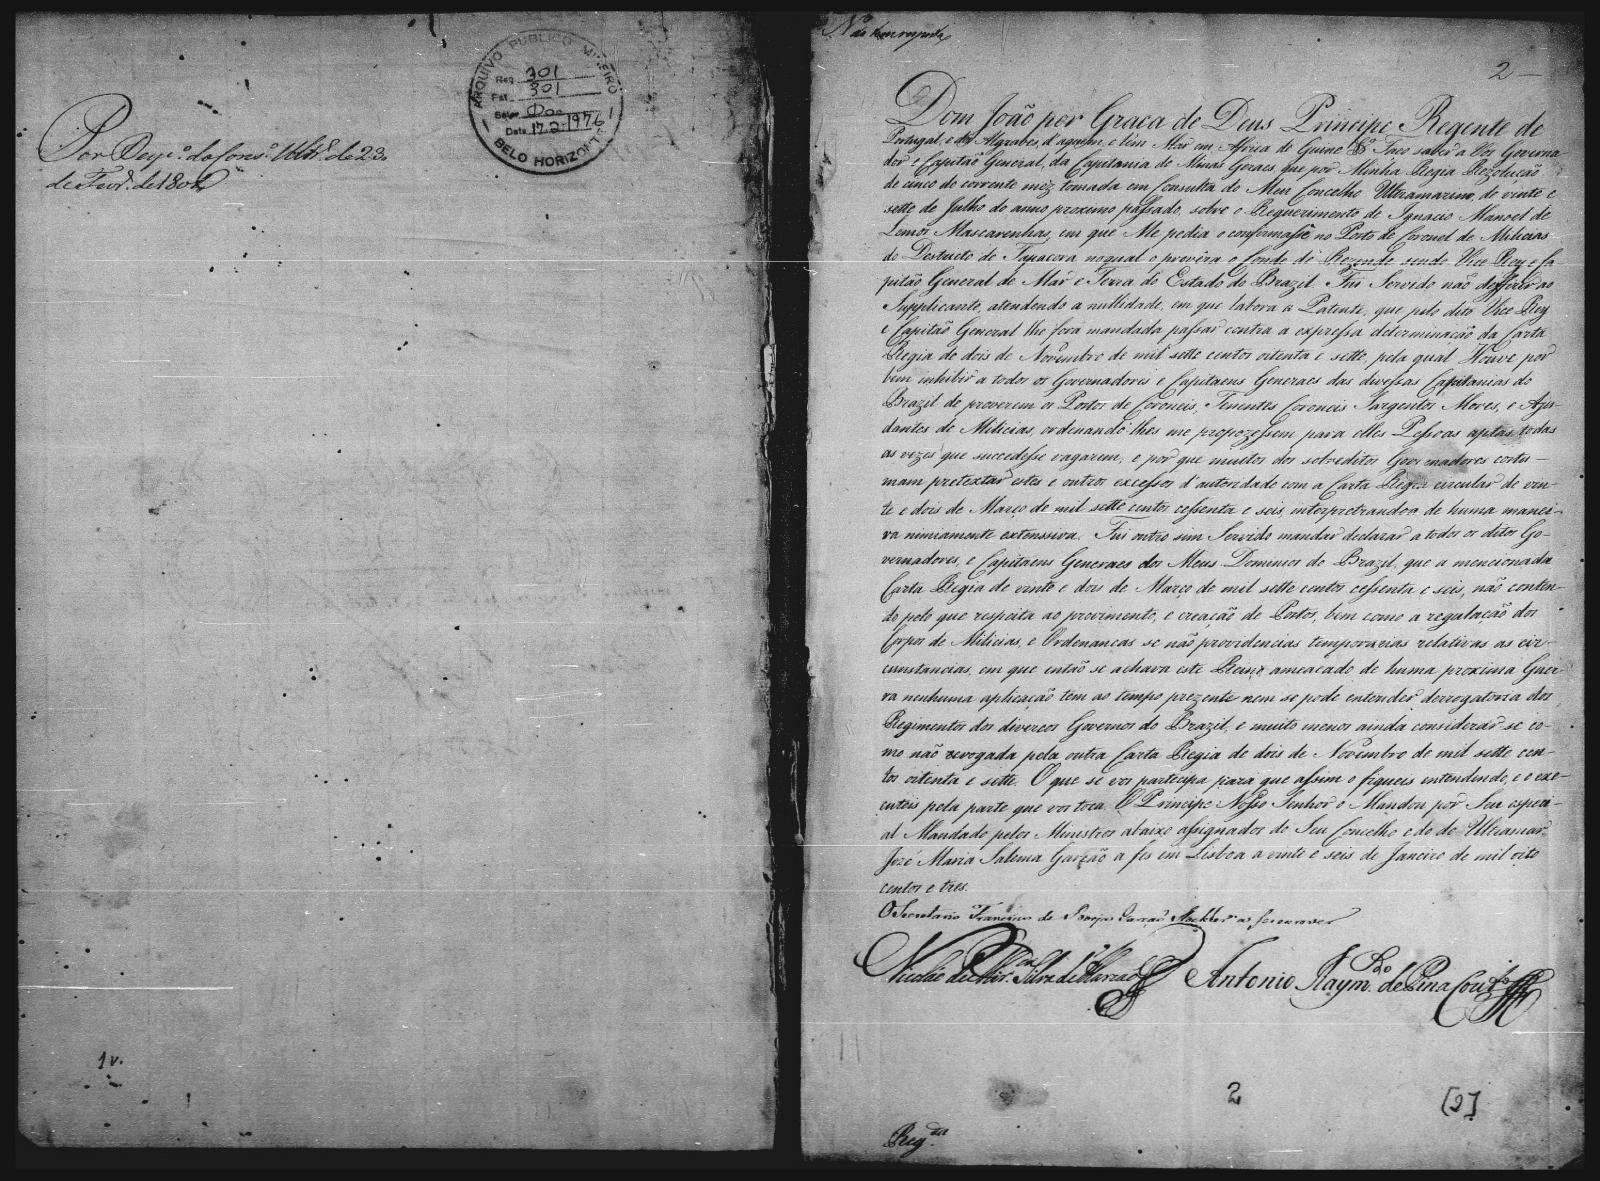 ARQUIVO PUBLICO MINEIRO
Reg. 301
Fot. 301
Setor Doc
Data 17.2.1976
BELO HORIZONTE
Por Desp.º do Cons.º Ultr.º de 23
de Fevr.º de 180
1v.
2
Dom João por Graça de Deus Principe Regente de
Portugal, e dos Algarves, d'aquem, e d'além Mar em Africa de Guiné &ª Faço saber a Vós Governa-
dor e Capitão General da Capitania de Minas Geraes que por Minha Regia Rezolução
de cinco do corrente mez tomada em Consulta do Meu Concelho Ultramarino de vinte e
sette de Julho do anno proximo passado, sobre o Requerimento de Ignacio Manoel de
Lemos Mascarenhas, em que Me pedia o confirmasse no Posto de Coronel de Milicias
do Destricto de Tapacora no qual o provêra o Conde de Rezende sendo Vice Rey e Ca-
pitão General de Mar e Terra do Estado do Brazil. Fui Servido não defferir ao
Supplicante, atendendo a nullidade, em que labora a Patente, que pelo dito Vice Rey
e Capitão General lhe fora mandada passar contra a expressa determinação da Carta
Regia de dois de Novembro de mil sette centos oitenta e sette, pela qual Houve por
bem inhibir a todos os Governadores e Capitaens Generaes das diversas Capitanias do
Brazil de proverem os Postos de Coroneis, Tenentes Coroneis Sargentos Mores, e Aju-
dantes de Milicias, ordenando lhes me propozessem para elles Pessoas aptas todas
as vezes que succedesse vagarem; e por que muitos dos sobreditos Governadores costu-
mam pretextar estes e outros excessos d'autoridade com a Carta Regia circular de vin-
te e dois de Março de mil sette centos cessenta e seis, interpretrandoa de huma manei-
ra nimiamente extenssiva. Fui outro sim Servido mandar declarar a todos os ditos Go-
vernadores, e Capitaens Generaes dos Meus Dominios do Brazil, que a mencionada
Carta Regia de vinte e dois de Março de mil sette centos cessenta e seis, não conten-
do pelo que respeita ao provimento, e creação de Postos, bem como a regulação dos
Corpos de Milicias, e Ordenancas se não providencias temporarias relativas as cir-
cunstancias, em que então se achava este Reino, ameaçado de huma proxima Guer-
ra nenhuma aplicação tem ao tempo prezente nem se pode entender derrogatoria dos
Regimentos dos diverços Governos do Brazil, e muito menos ainda considerar-se co-
mo não revogada pela outra Carta Regia de dois de Novembro de mil sette cen-
tos oitenta e sette. O que se vos participa para que assim o fiqueis entendendo, e o exe-
cuteis pela parte que vos toca. O Principe Nosso Senhor o Mandou por Seu especi-
al Mandado pelos Ministros abaixo assignados do Seu Concelho e do de Ultramar.
José Maria Salema Garção a fes em Lisboa a vinte e seis de Janeiro de mil oito
centos e tres.
O Secretario Francisco de Borja Garção Stockler a fes escrever
Nicoláo da Silva
Antonio Raym.do de Pina Cout.º
2
[2]
Reg.da